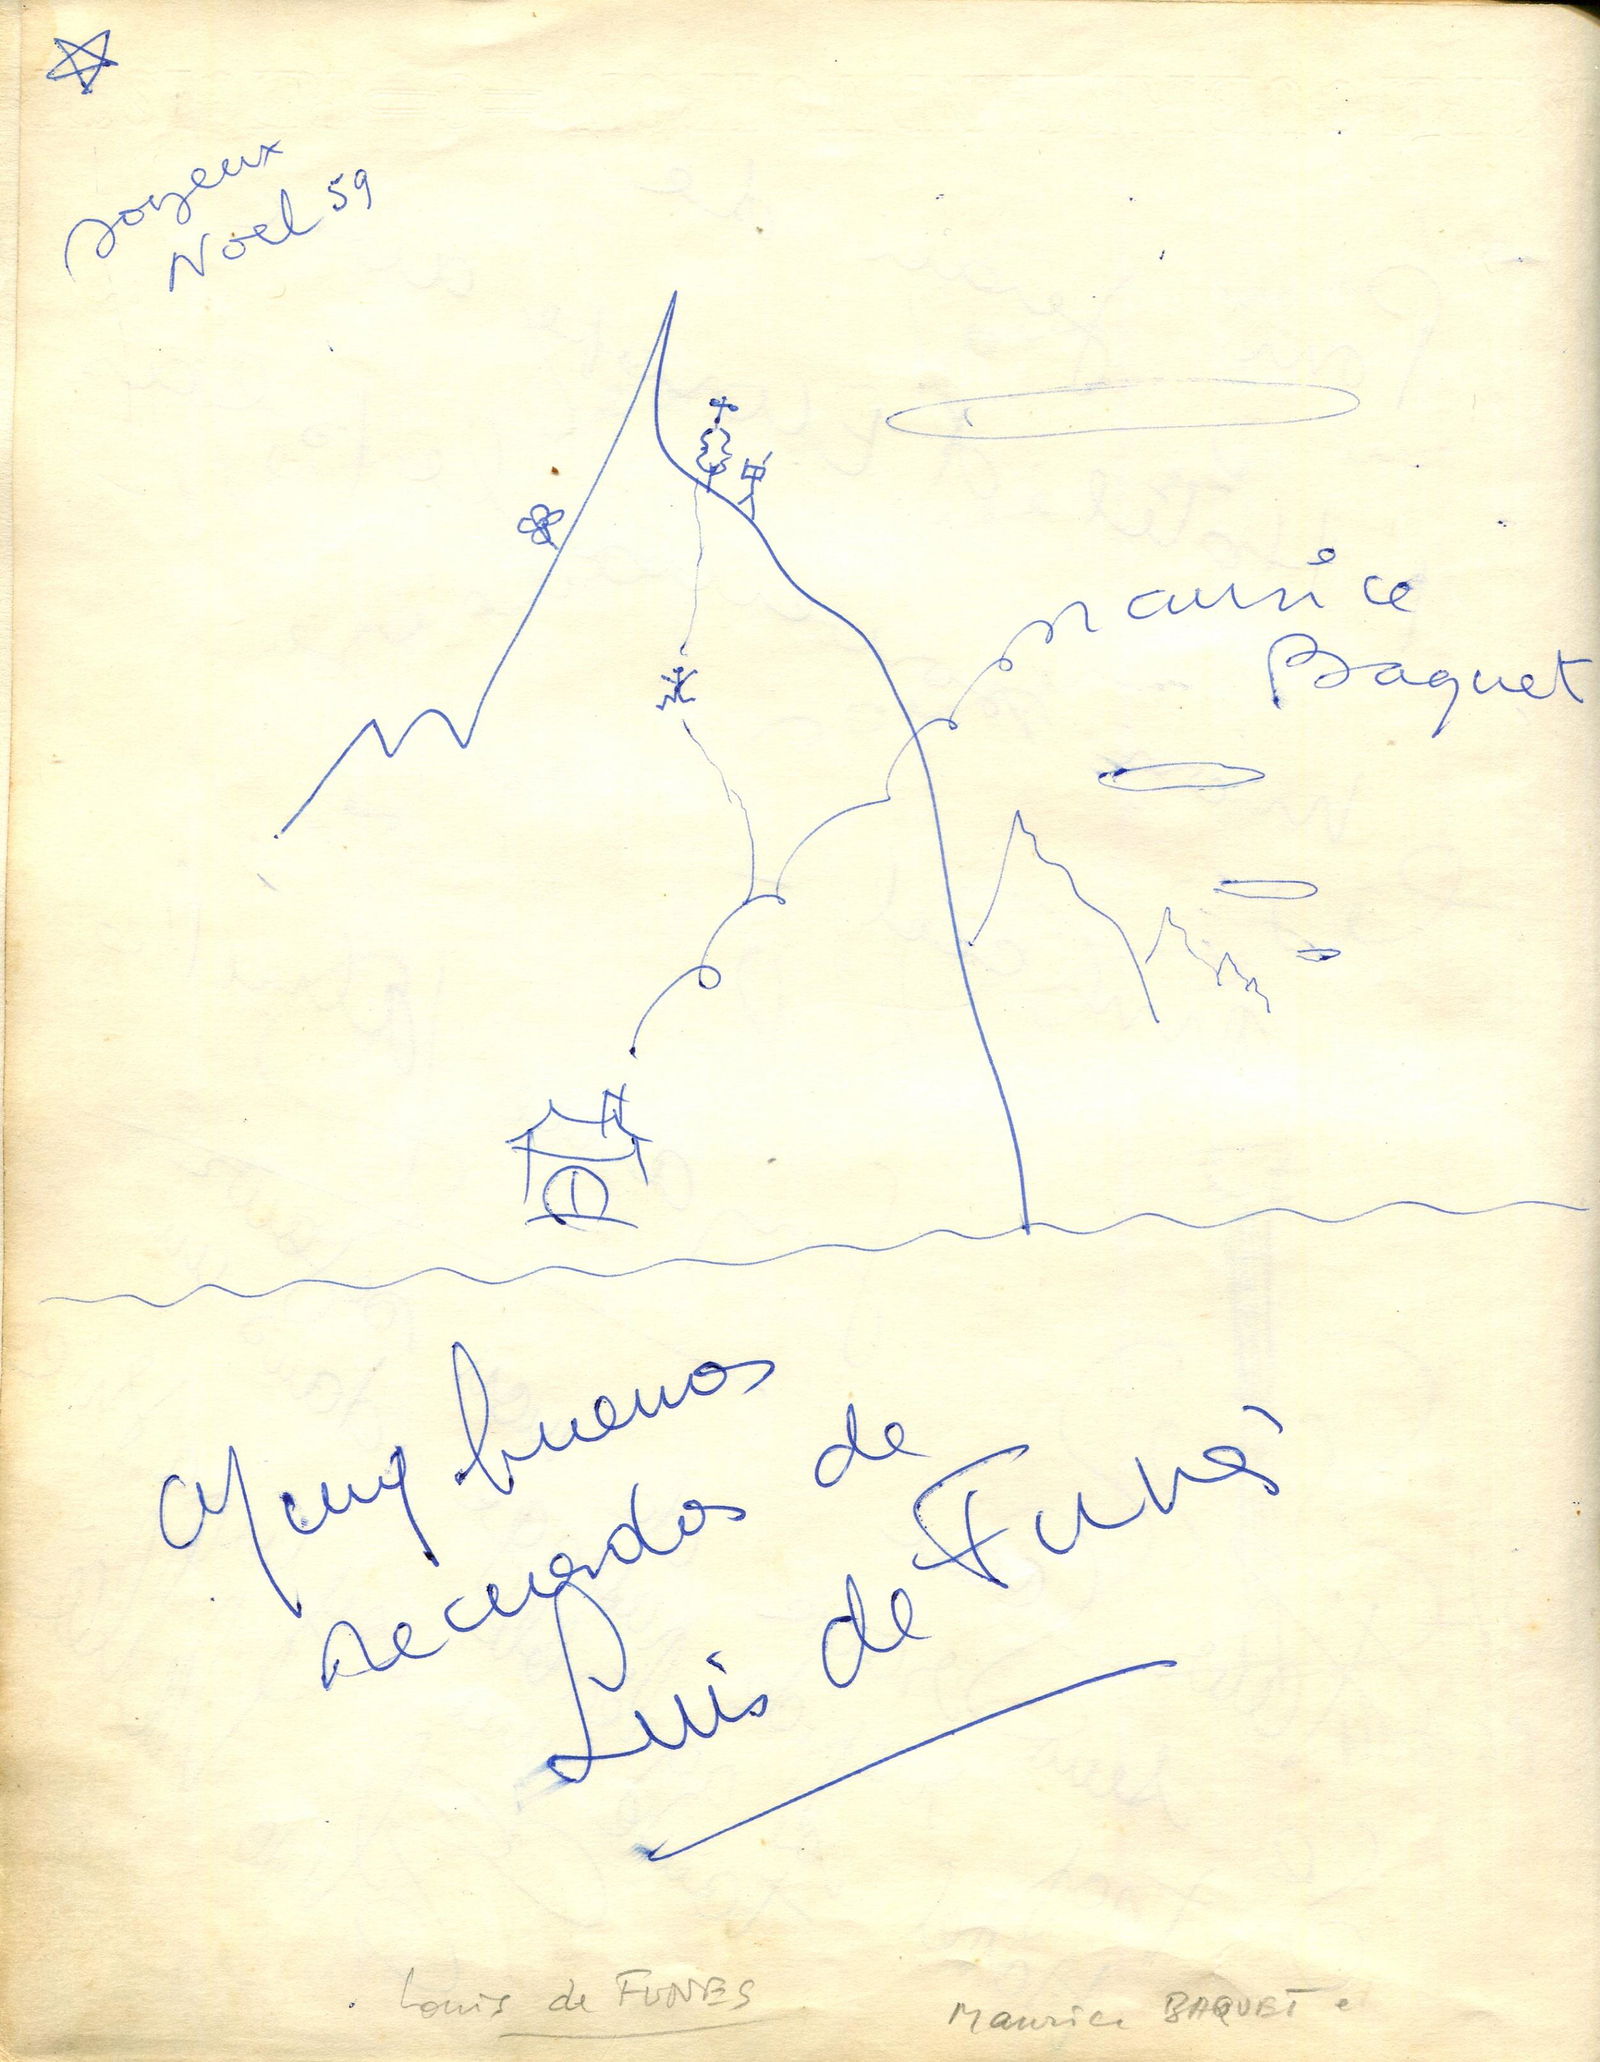 Joyeux
Noel 59
Maurice
Baquet
Muy buenos
recuerdos de
Luis de Funès
Louis de FUNES
Maurice BAQUET